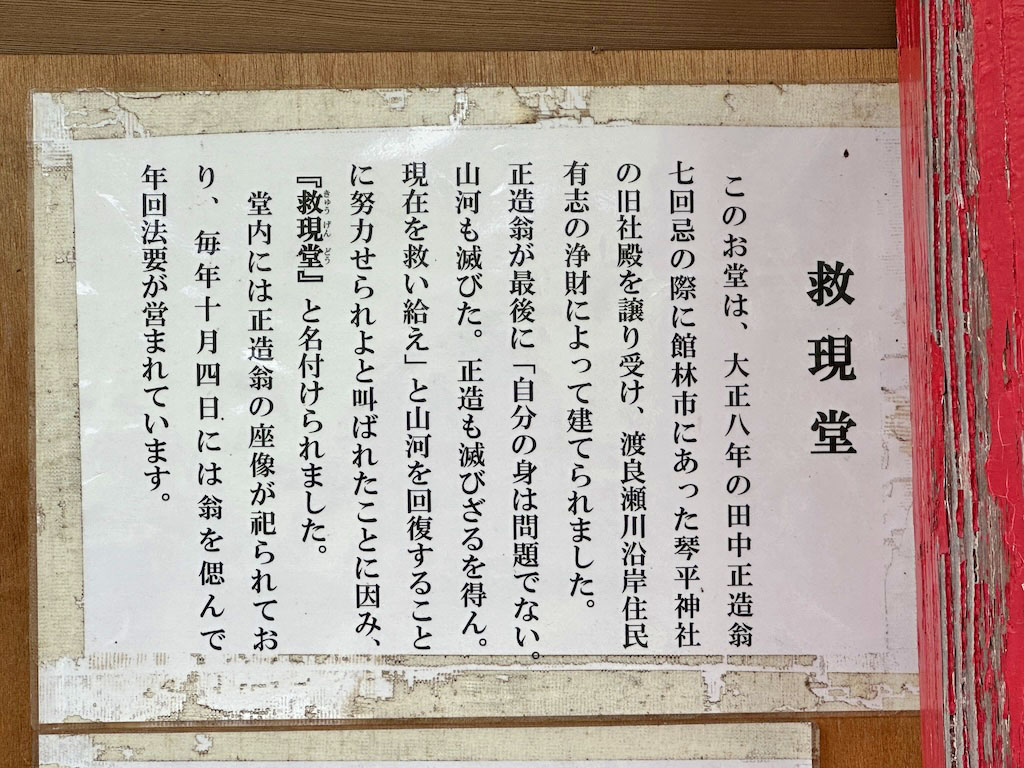 救現堂
このお堂は、大正八年の田中正造翁
七回忌の際に館林市にあった琴平神社
の旧社殿を譲り受け、渡良瀬川沿岸住民
有志の浄財によって建てられました。
正造翁が最後に「自分の身は問題でない。
山河も滅びた。正造も滅びざるを得ん。
現在を救い給え」と山河を回復すること
に努力せられよと叫ばれたことに因み、
きゅうげんどう
『救現堂』と名付けられました。
堂内には正造翁の座像が祀られてお
り、毎年十月四日には翁を偲んで
年回法要が営まれています。